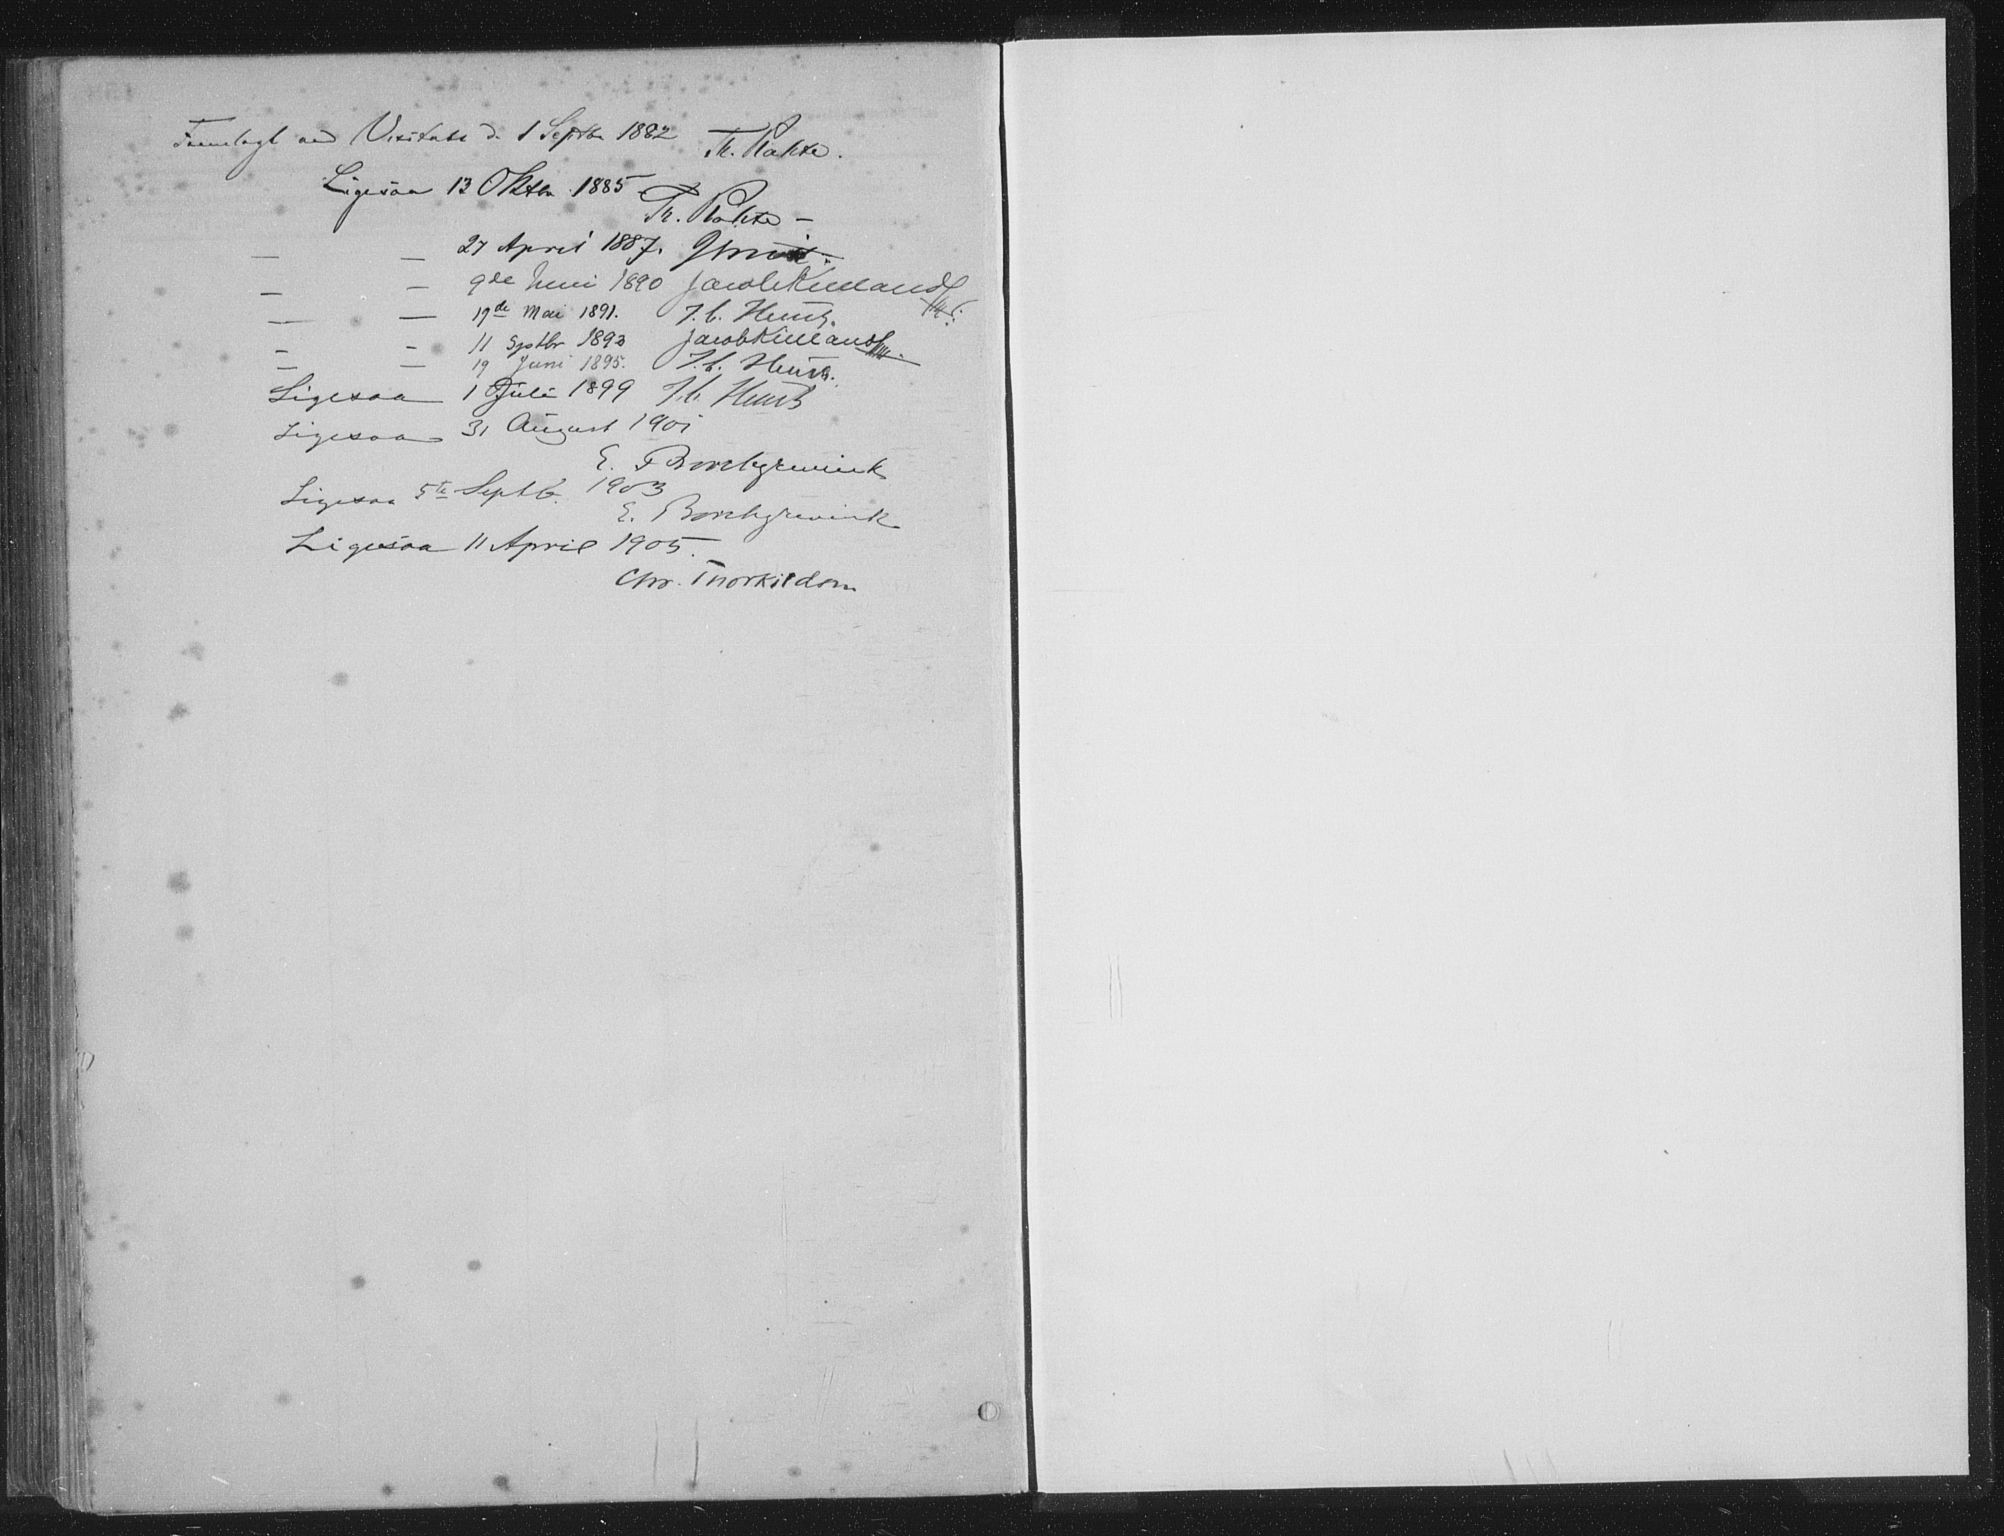 Fremlagt ved Visitats d. 1 Septbr 1882 Th. Rakte.
Ligesaa 13 Oktbr. 1885
Th. Rakte –
— — 27 April 1887.
— — 9de Juni 1890 Jacob Kielland
— — 19de Mai 1891. J. C. Heuch.
– – 11 Septbr 1893 Jacob Kielland
— — 19 Juni 1895. J. C. Heuch.
Ligesaa 1 Juli 1899 J. C. Heuch
Ligesaa 31 August 1901
E. F Borchgrevink
Ligesaa 5te Septb. 1903
E. Borchgrevink
Ligesaa 11 April 1905.
Chr. Thorkildsen